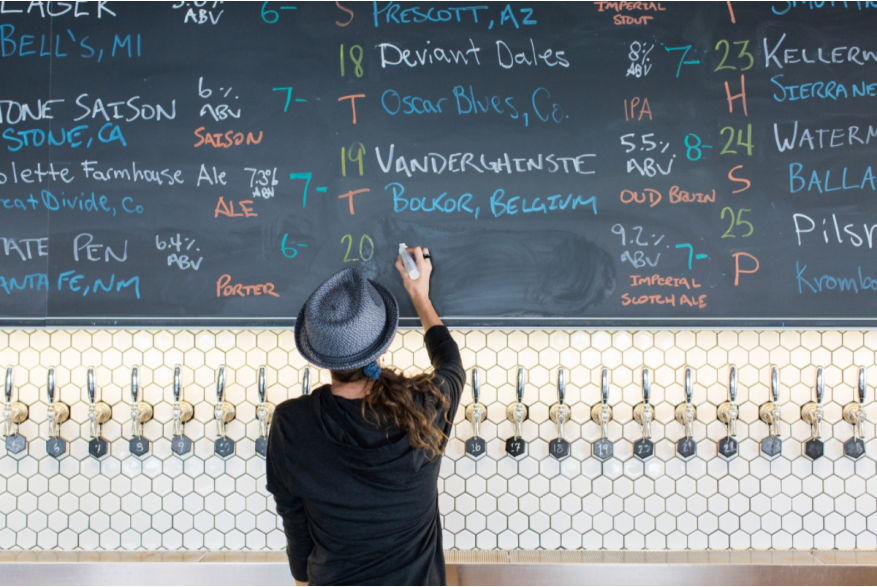 LAGER
ABV
6-
BELL'S, MI
STONE SAISON 6% ABV 7-
STONE, CA SAISON
olette Farmhouse Ale 7.3% ABV 7-
Great Divide, Co ALE
TATE PEN 6.4% ABV 6-
SANTA FE, NM PORTER
S PRESCOTT, AZ IMPERIAL STOUT
18 Deviant Dales 8% ABV 7-
T Oscar Blues, Co. IPA
19 VANDERGHINSTE 5.5% ABV 8-
T BOCKOR, BELGIUM OUD BRUIN
20 9.2% ABV 7-
IMPERIAL SCOTCH ALE
23 KELLERW
H SIERRA NE
24 WATERM
S BALLA
25 Pilsn
P Kromba
17 18 19